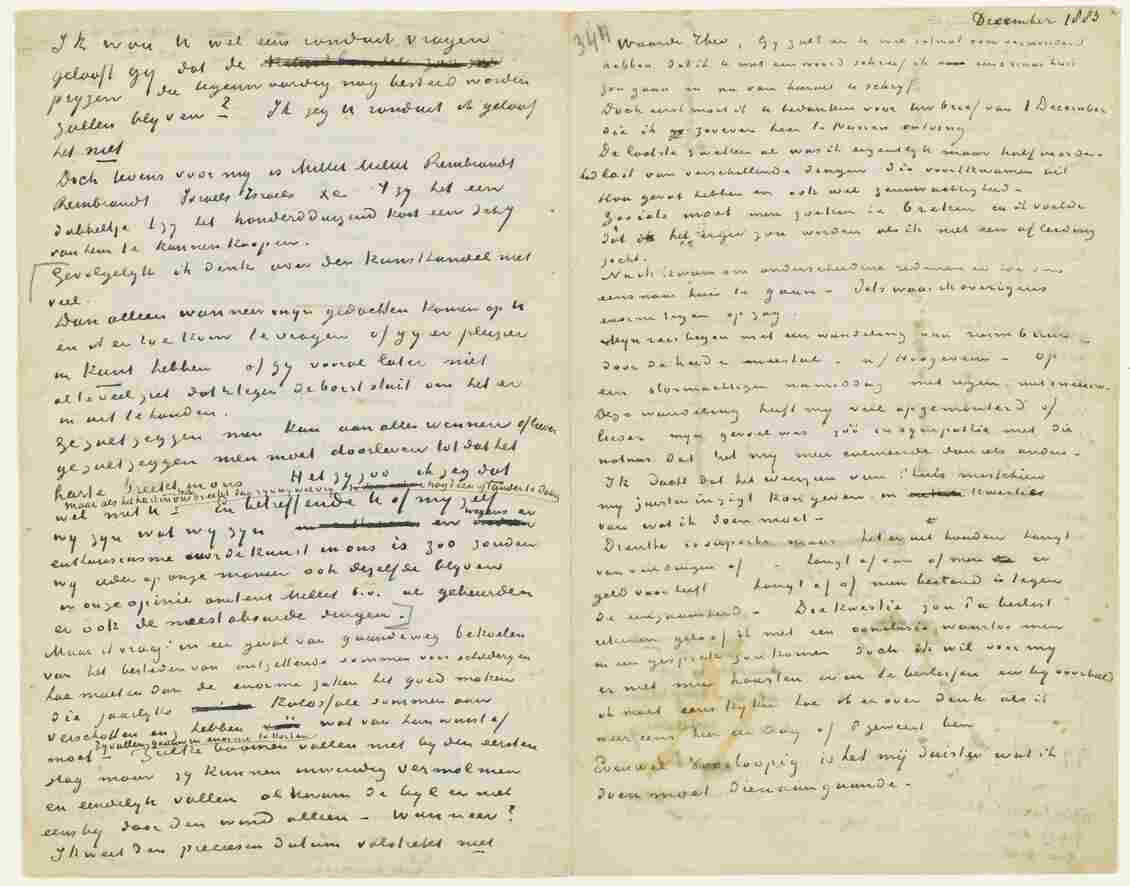 Ik wou U wel eens ronduit vragen
gelooft gy dat de
pryzen die tegenwoordig nog besteed worden
zullen blyven? Ik zeg U ronduit ik geloof
het niet
Doch tevens voor my is Millet Millet Rembrandt
Rembrandt Israels Israels &a 't zy het een
dubbeltje t zy het honderdduizend kost een schy
van hem te kunnen koopen.
Gevolgelyk ik denk over den Kunsthandel niet
veel.
Dan alleen wanneer myn gedachten komen op U
en ik er toe kom te vragen of gy er pleizier
in kunt hebben of gy vooral later niet
al te veel ziet dat U tegen de borst stuit om het er
in uit te houden.
Ge zult zeggen men kan aan alles wennen of liever
ge zult zeggen men moet doorleven tot dat het
harte breekt in ons Het zy zoo ik zeg dat
wel met U – in betreffende U of my zelf
wy zyn wat wy zyn en wegens er
enthousiasme voor de kunst in ons is zoo zouden
wy ieder op onze manier ook dezelfde blyven
in onze opinie omtrent Millet b.v. al gebeurden
er ook de meest absurde dingen.]
Maar ik vraag: in een geval van gaandeweg bekoelen
van het besteden van ontzettende sommen voor schilderyen
hoe moeten dan de enorme zaken het goed maken
die jaarlyks Kolossale sommen aan
verschotten enz hebben wat van hun winst af
moet – Zulke boomen vallen niet by den eersten
slag maar zy kunnen inwendig vermolmen
en eindelyk vallen al kwam de byl er niet
eens by door den wind alleen – Wanneer?
Ik weet den preciesen datum volstrekt niet
December 1883
344
Waarde Theo, Gy zult er U wel ietwat over verwonderd
hebben dat ik U met een woord schreef ik eens naar huis
zou gaan en nu van hieruit U schryf.
Doch eerst moet ik U bedanken voor Uw brief van 1 December
die ik zooeven hier te Nunen ontving
De laatste 3 weken al was ik eigentlyk maar half wordee-
had last van verschillende dingen die voortkwamen uit
kou gevat hebben en ook wel zenuwachtigheid –
Zooiets moet men zoeken te breken en ik voelde
dat het erger zou worden als ik niet een afleiding
zocht.
Nu ik kwam om onderscheidene redenen er toe om
eens naar huis te gaan – Iets waar ik overigens
enorm tegen op zag.
Myn reis begon met een wandeling van ruim 6 uur –
door de heide meestal – n/ Hoogeveen – Op
een stormachtigen namiddag met regen, met sneeuw.
Deze wandeling heeft my veel opgemonterd of
liever myn gevoel was zóó in sympathie met die
natuur dat het my meer calmeerde dan iets anders –
Ik dacht dat het weerzien van 't huis misschien
my juister inzigt kon geven in Kwesties
van wat ik doen moet –
Drenthe is superbe maar het er uit houden hangt
van veel dingen af – hangt af van of men er
geld voor heeft hangt af of men bestand is tegen
de eenzaamheid. – Die kwestie zou Pa beslist
rekenen geloof ik met een conclusie waartoe men
in een gesprek zou komen doch ik wil voor my
er niet mee haasten even te beslissen en by voorbeeld
ik moet eens kyken hoe ik er over denk als ik
weer eens hier een dag of 8 geweest ben
Evenwel voorloopig is het mij duister wat ik
doen moet dienaangaande –